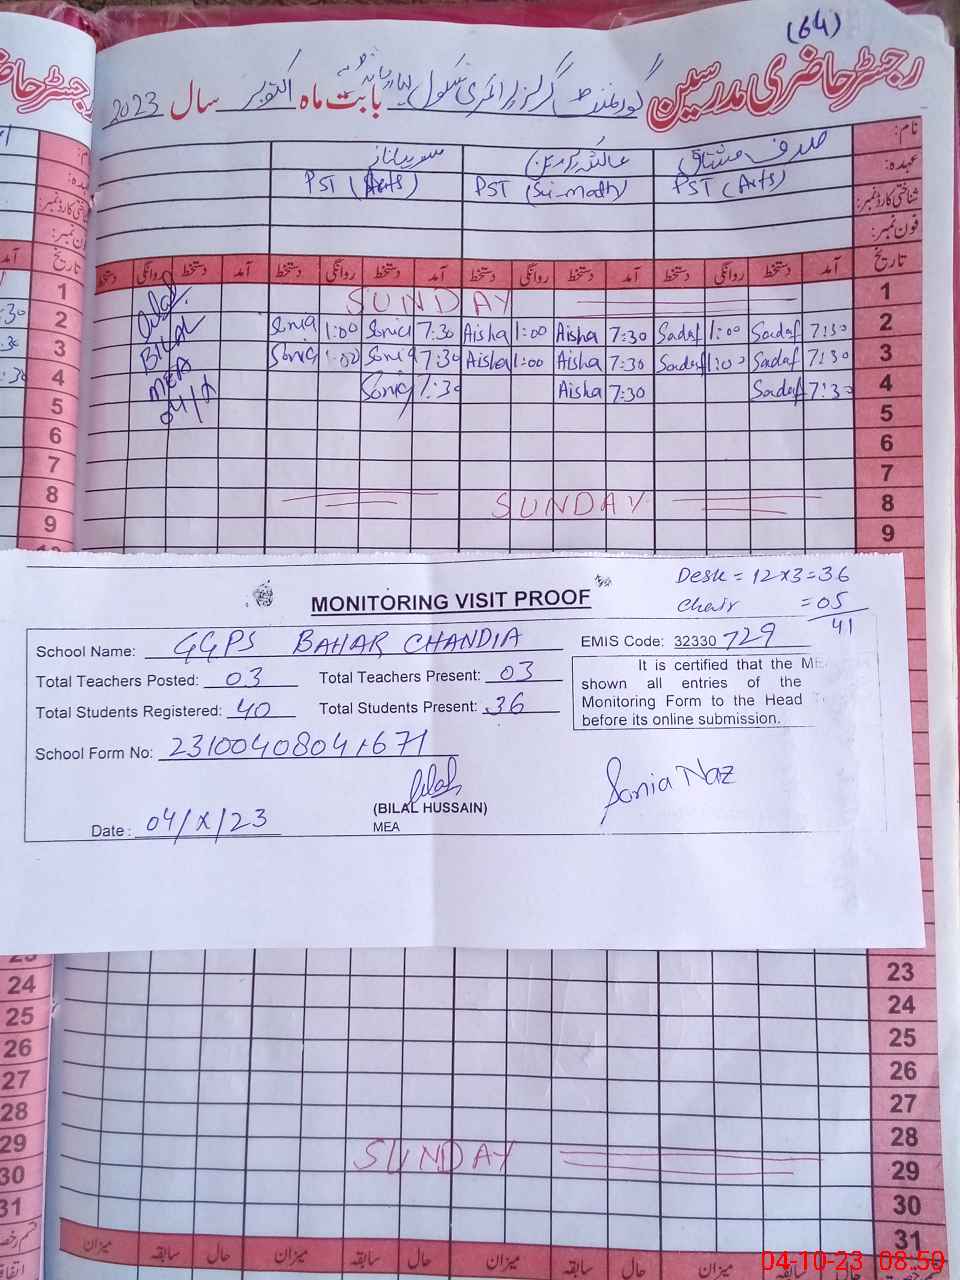 (64)
رجسٹر حاضری مدرسین گورنمنٹ گرلز پرائمری سکول بابت ماہ اکتوبر سال 2023
نام:
عہدہ:
شناختی کارڈ نمبر:
فون نمبر:
صدف مشتاق عائشہ سونیا ناز
PST (Arts) PST (Sci-math) PST (Arts)
تاریخ آمد دستخط روانگی دستخط آمد دستخط روانگی دستخط آمد دستخط روانگی دستخط آمد دستخط روانگی
1 SUNDAY 1
2 Sonia 1:00 Sonia 7:30 Aisha 1:00 Aisha 7:30 Sadaf 1:00 Sadaf 7:30 2
3 Sonia 1:00 Sonia 7:30 Aisha 1:00 Aisha 7:30 Sadaf 1:00 Sadaf 7:30 3
4 Sonia 7:30 Aisha 7:30 Sadaf 7:30 4
Bilal
BILAL
MEA
04/X
5 5
6 6
7 7
8 SUNDAY 8
9 9
Desk = 12x3=36
chair =05
41
MONITORING VISIT PROOF
School Name: GGPS BAHAR CHANDIA EMIS Code: 32330729
Total Teachers Posted: 03 Total Teachers Present: 03
Total Students Registered: 40 Total Students Present: 36
It is certified that the ME
shown all entries of the
Monitoring Form to the Head
before its online submission.
School Form No: 23100408041671
Bilal
(BILAL HUSSAIN)
MEA
Sonia Naz
Date: 04/X/23
23 23
24 24
25 25
26 26
27 27
28 28
29 SUNDAY 29
30 30
31 31
میزان سابقہ حال میزان سابقہ حال میزان سابقہ حال میزان سابقہ
04-10-23 08:50